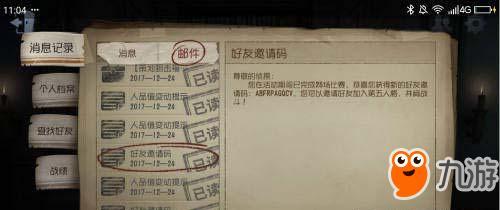 11:04
4G
消息记录
个人档案
查找好友
战绩
消息
邮件
2017-12-24
已读
人品值变动提示
2017-12-24
已读
好友邀请码
2017-12-24
已读
人品值变动提示
2017-12-24
已读
好友邀请码
尊敬的侦探:
您在活动期间已完成25场比赛,恭喜您获得新的好友邀
请码:ABFRPAGQCV,您可以邀请好友加入第五人格,并肩战
斗!
九游